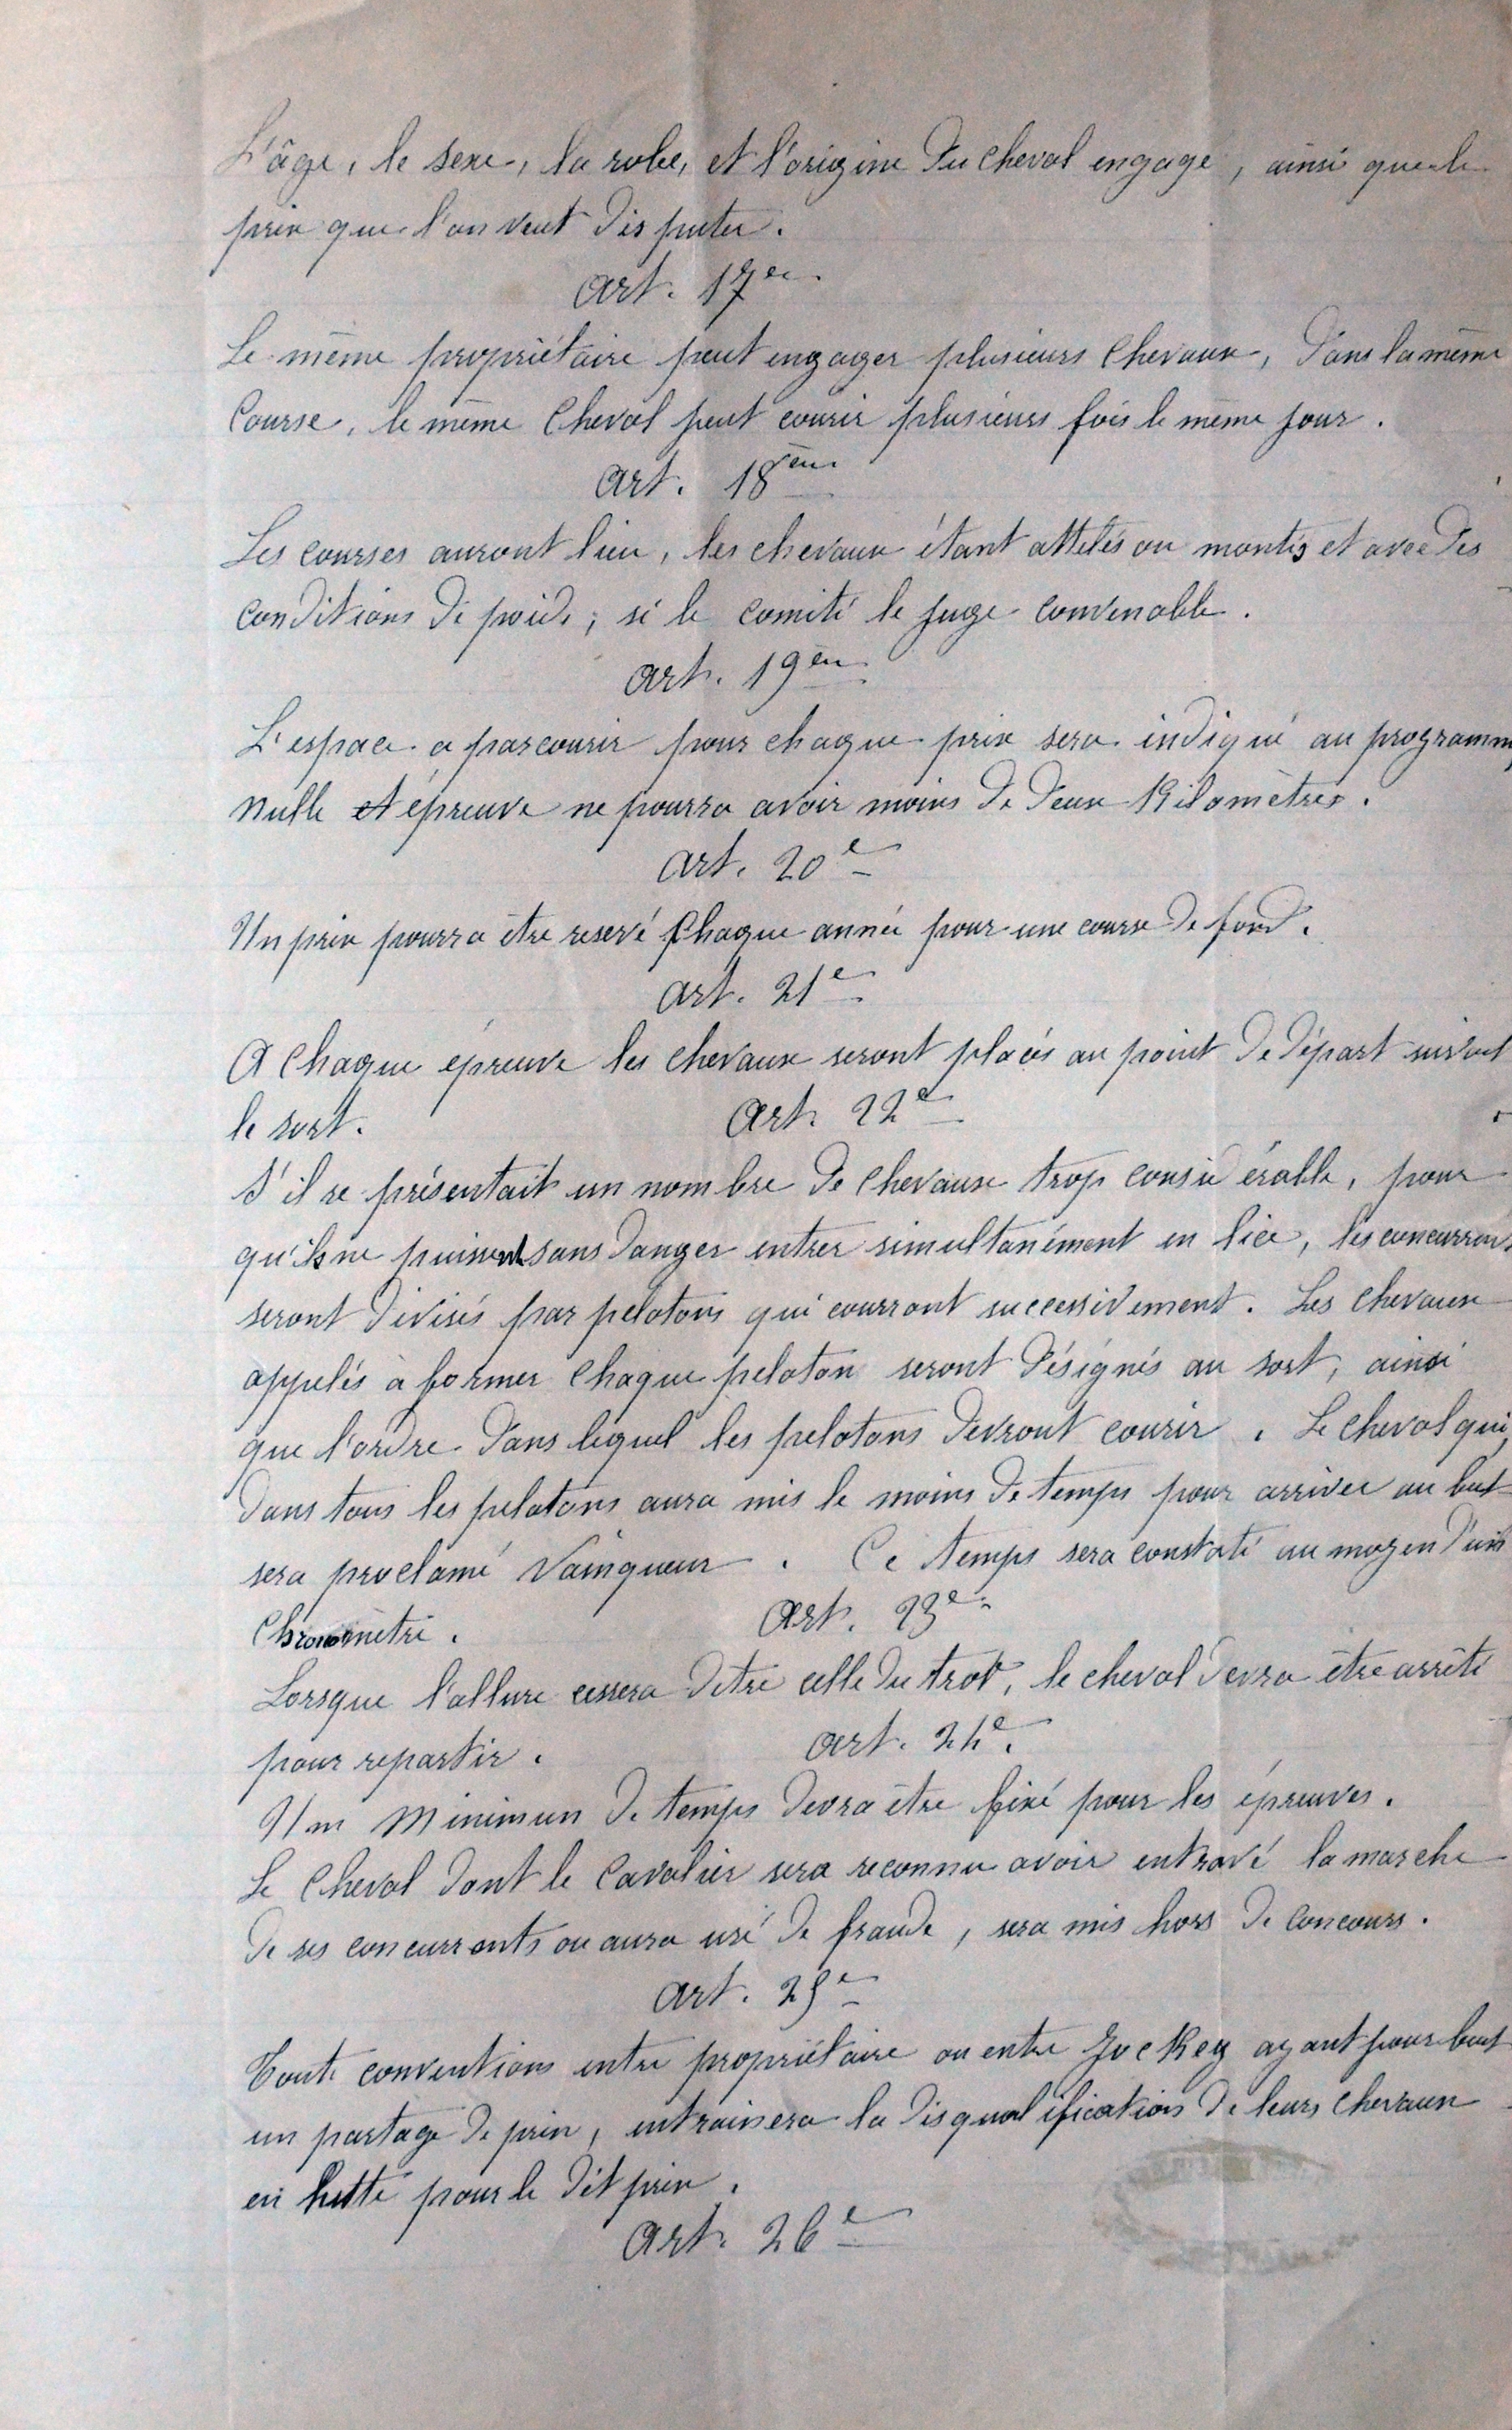 L'âge, le sexe, la robe, et l'origine du cheval engagé, ainsi que le
prix que l'on veut disputer.
Art. 17em
Le même propriétaire peut engager plusieurs chevaux, dans la même
Course, le même Cheval peut courir plusieurs fois le même jour.
Art. 18em
Les courses auront lieu, les chevaux étant attelés ou montés et avec des
conditions de poids, si le comité le juge convenable.
Art. 19em
L'espace a parcourir pour chaque prix sera indiqué au programme
nulle épreuve ne pourra avoir moins de deux Kilomètres.
Art. 20e
Un prix pourra être reservé Chaque année pour une course de fond.
Art. 21e
A Chaque épreuve les chevaux seront placés au point de départ suivant
le sort.
Art. 22e
S'il se présentait un nombre de Chevaux trop considérable, pour
qu'ils ne puissent sans danger entrer simultanément en lice, les concurrents
seront divisés par pelotons qui courront successivement. Les chevaux
appelés à former Chaque peloton seront désignés au sort, ainsi
que l'ordre dans lequel les pelotons devront courir. Le Cheval qui,
dans tous les pelotons aura mis le moins de temps pour arriver au but
sera proclamé Vainqueur. Ce temps sera constaté au moyen d'un
Chronomètre.
Art. 23e
Lorsque l'allure cessera d'être celle du trot, le cheval devra être arrêté
pour repartir.
Art. 24e.
Un Minimun de temps devra être fixé pour les épreuves.
Le Cheval dont le Cavalier sera reconnu avoir entravé la marche
de ses concurrents ou aura usé de fraude, sera mis hors de Concours.
Art. 25e
Toute conventions entre propriétaire ou entre Jockey ayant pour but
un partage de prix, entrainera la disqualification de leurs chevaux
en lutte pour le dit prix.
Art. 26e